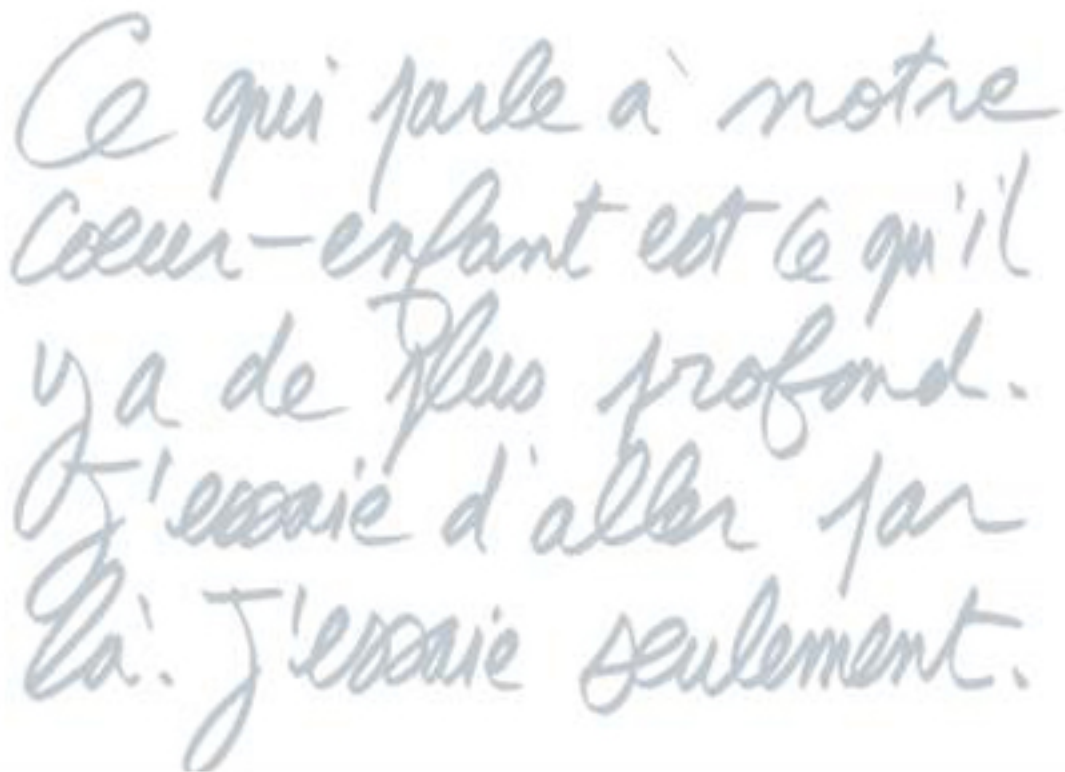 Ce qui parle à notre
coeur-enfant est ce qu'il
y a de plus profond.
J'essaie d'aller par
là. J'essaie seulement.